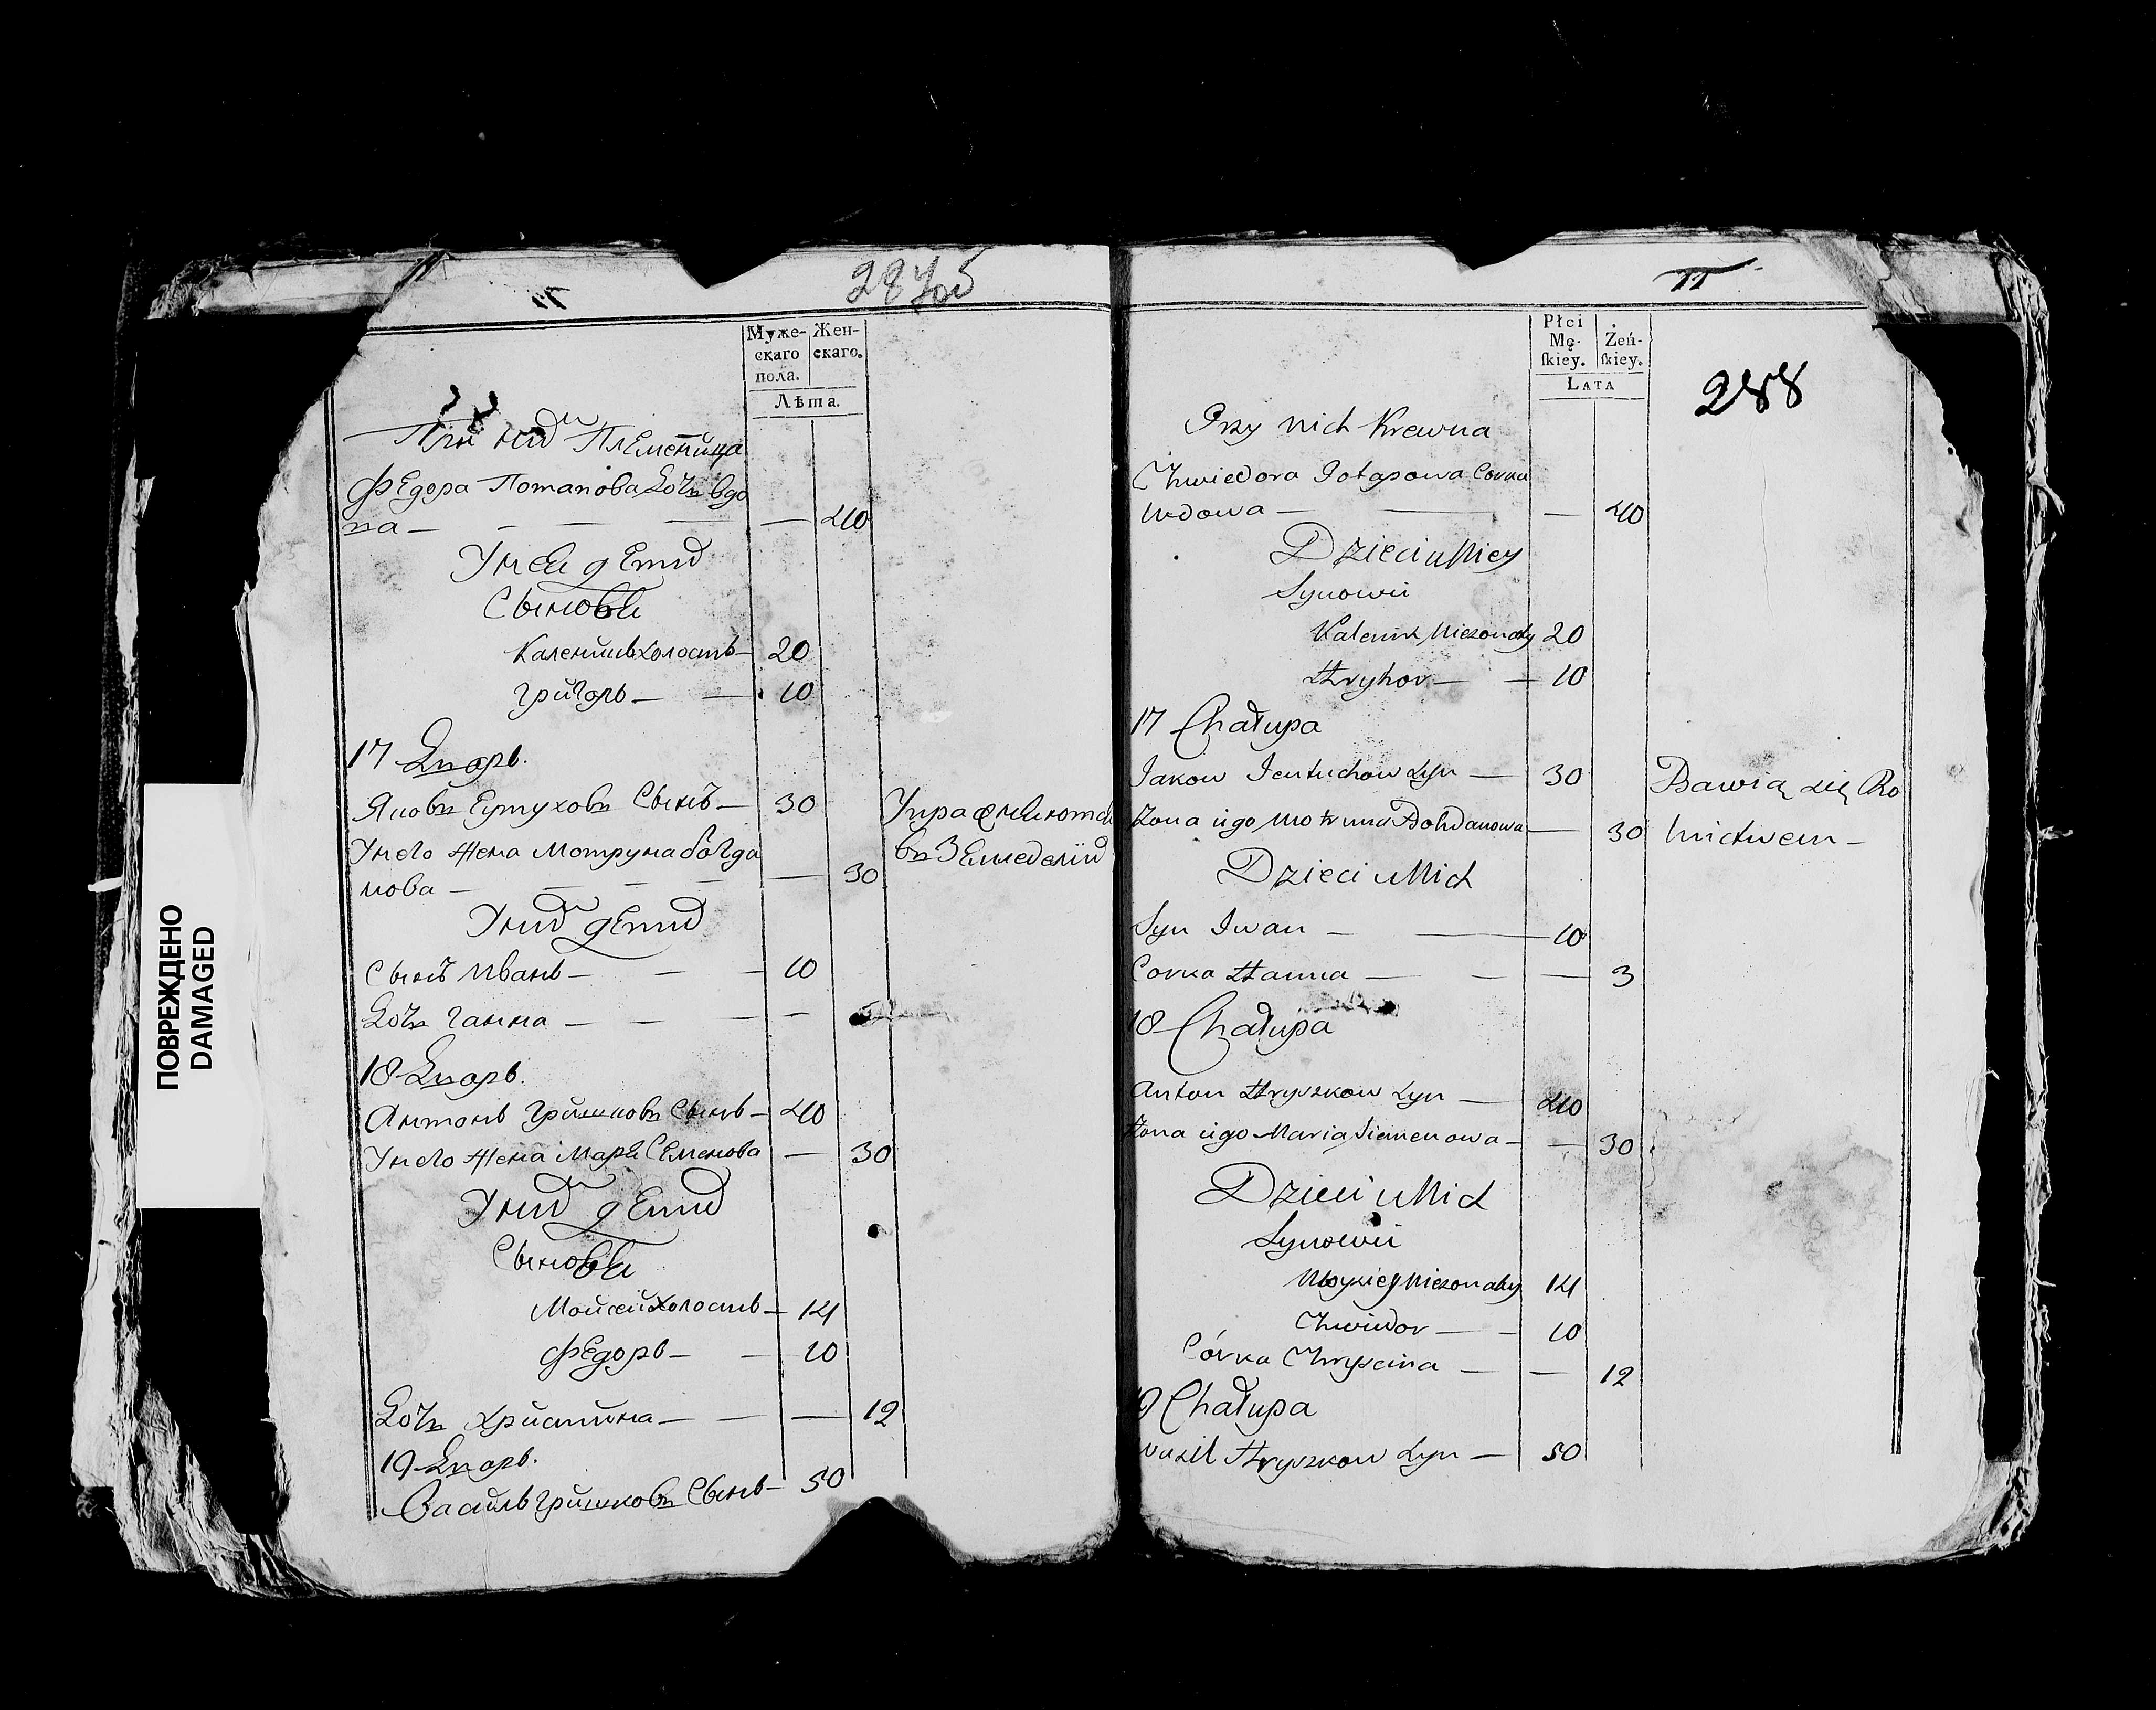 ПОВРЕЖДЕНО
DAMAGED
287об
Муже-
скаго
пола.
Жен-
скаго.
Лѣта.
При них Племеница
Федора Потапова Дочъ вдо
ва — — — — — 40
Унеи дети
Сынове
Каленикъ холостъ — 20
Григоръ — — 10
17 Дворъ.
Яковъ Евтуховъ Сынъ — 30
Упражняютса
Унего жена Мотруна Богда
въЗемледелїи
нова — — — — — 30
Уних дети
Сынъ Иванъ — — — 10
Дочъ Ганна — — — —
18 Дворъ.
Антонъ Гришковъ Сынъ — 40
Унего жена Маря Семенова — 30
Уних дети
Сынове
Моисей холостъ — 14
Федоръ — — 10
Дочъ Христина — — — 12
19 Дворъ.
Василь Гришковъ Сынъ — 50
288
Płci
Mę-
ſkiey.
Żeń-
ſkiey.
LATA
Przy nich Krewna
Chwiedora Potapowa Corka
Wdowa — — — 40
Dzieci u Niey
Synowie
Kalenik Niezonaty 20
Hryhor — — 10
17 Chałupa
Jakow Jewtuchow Syn — 30
Bawią się Ro
Zona iego Motruna Bohdanowa — 30
lnictwem —
Dzieci u Nich
Syn Iwan — — 10
Corka Hanna — — — 3
18 Chałupa
Anton Hryszkow Syn — 40
Zona iego Maria Siemenowa — — 30
Dzieci u Nich
Synowie
Moysiey Niezonaty 14
Chwiedor — — 10
Córka Chryscina — — 12
19 Chałupa
Wasil Hryszkow Syn — 50